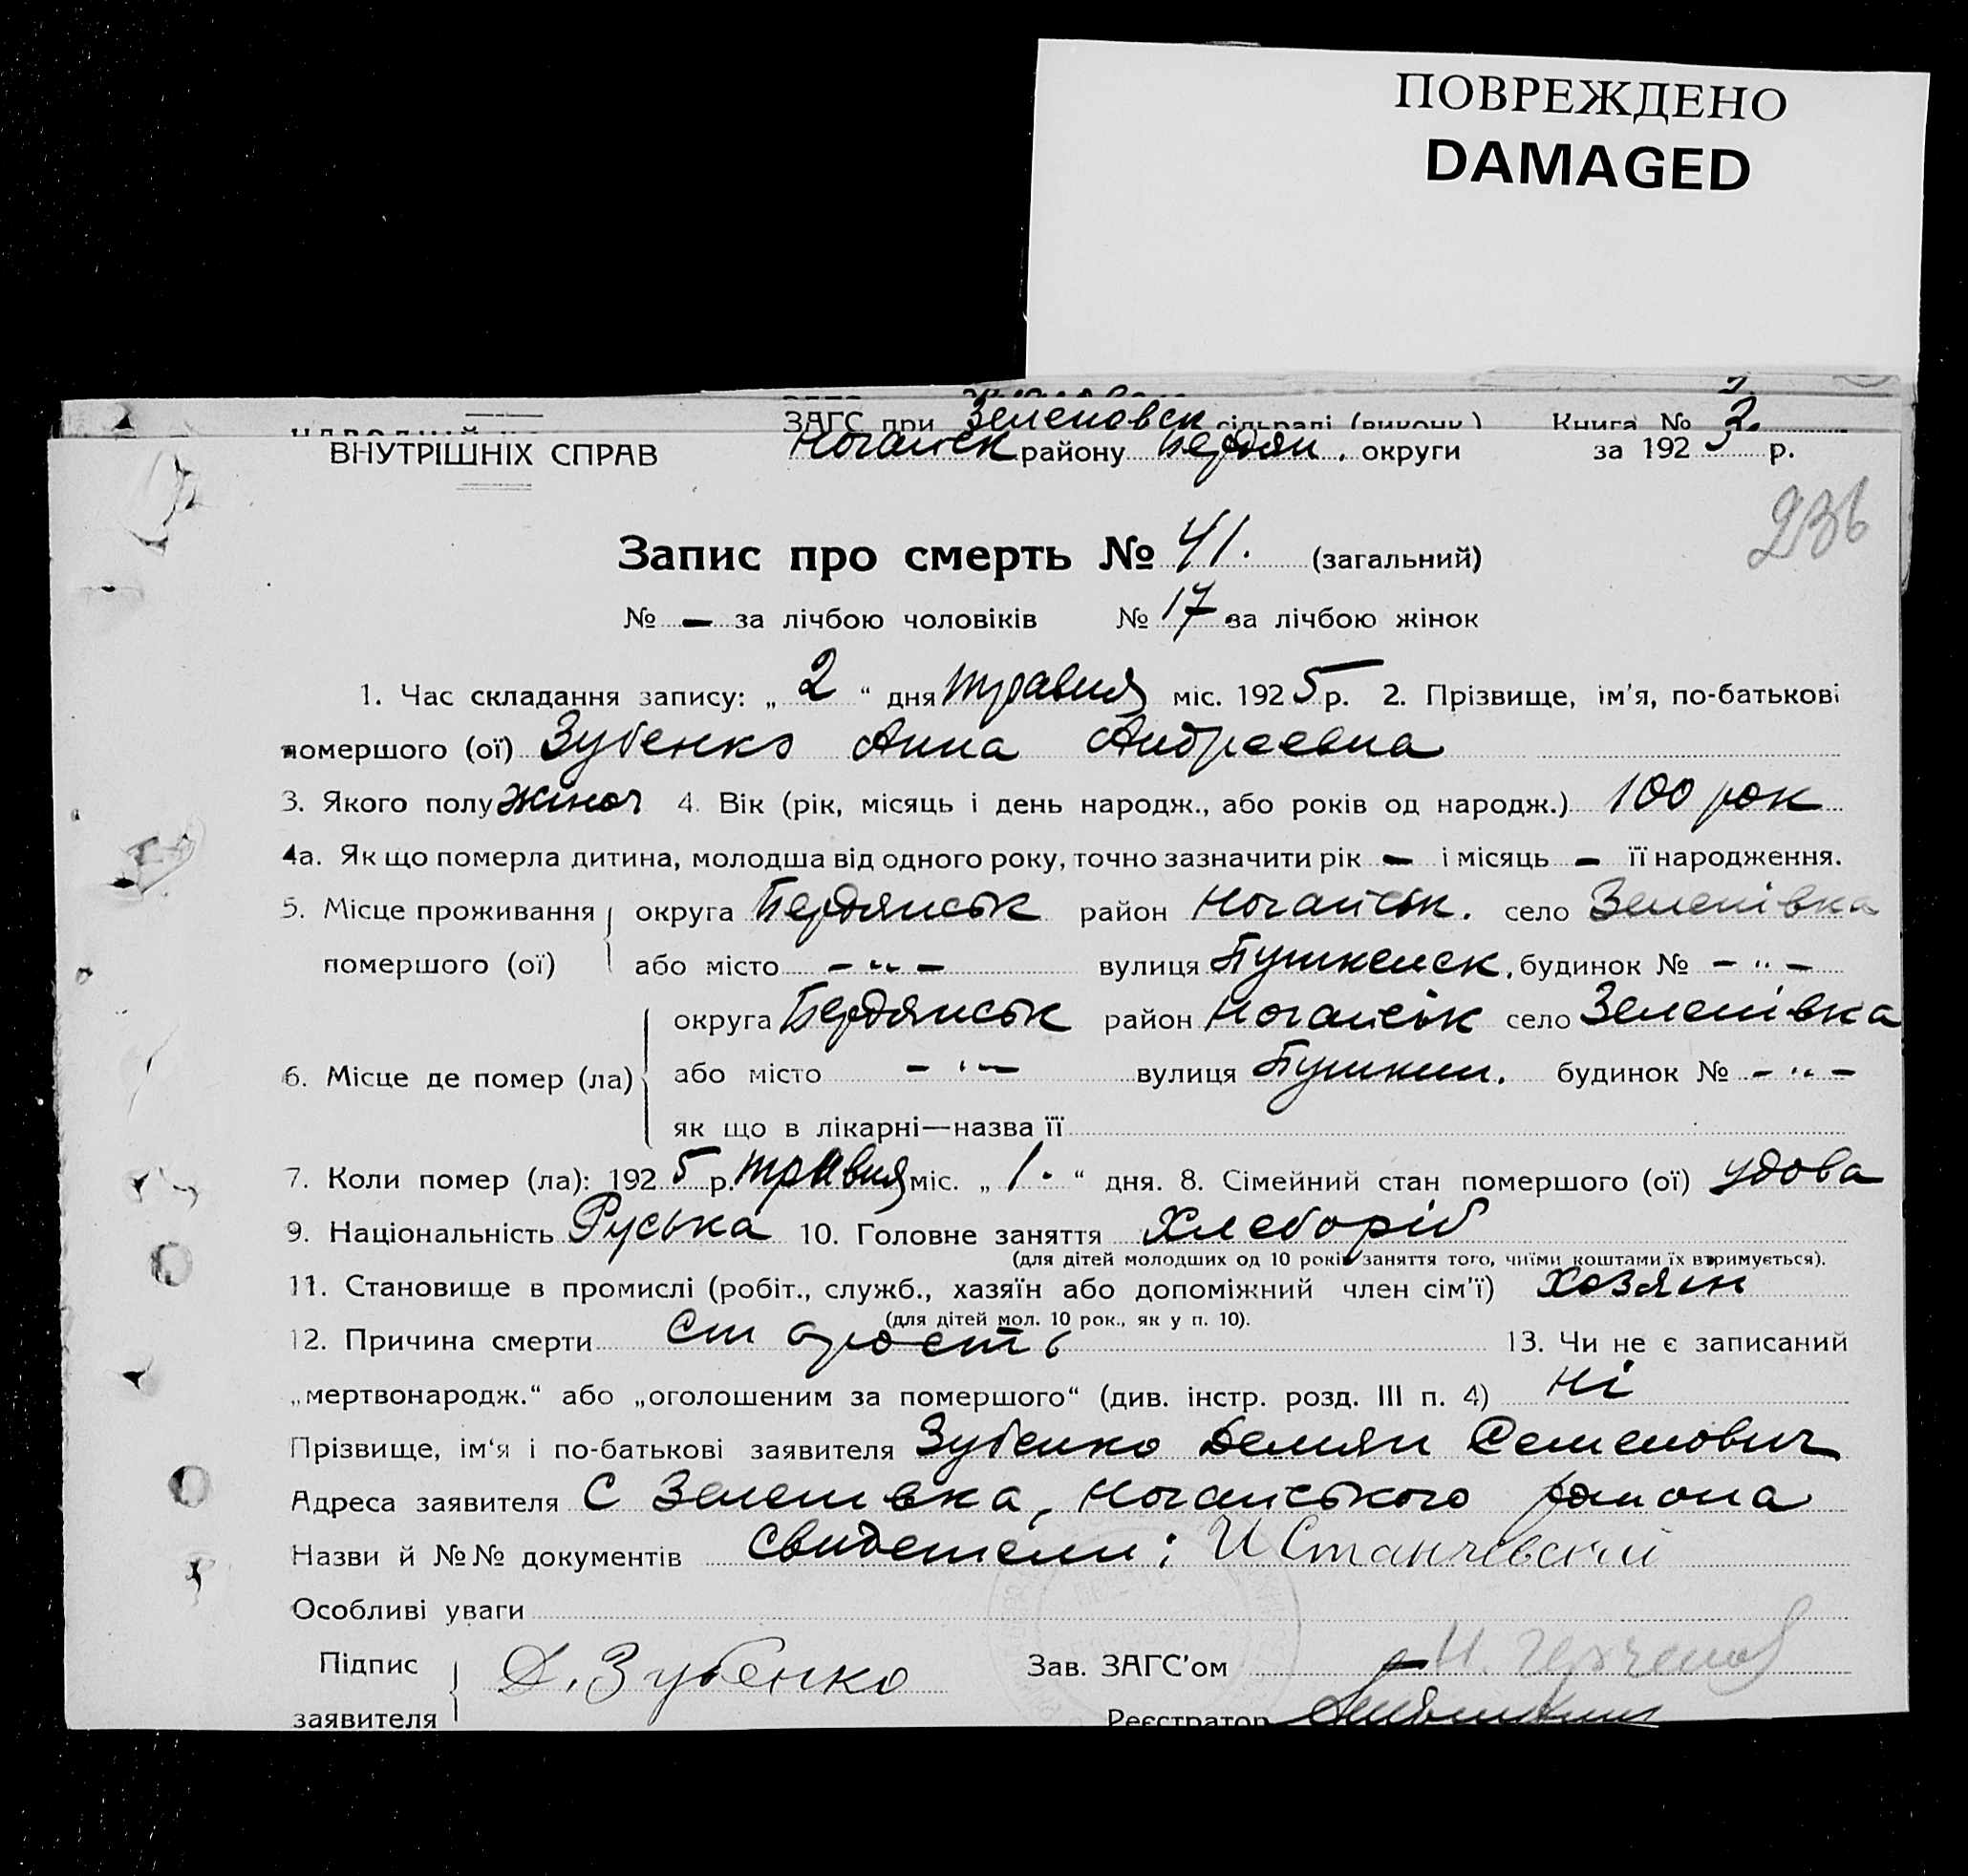 ПОВРЕЖДЕНО
DAMAGED
ЗАГС при Зеленовск сільраді (виконк.) Книга № 2.
ВНУТРІШНІХ СПРАВ Ногайск району Бердян. округи за 1925 р.
236
Запис про смерть № 41. (загальний)
№ – за лічбою чоловіків № 17 за лічбою жінок
1. Час складання запису: „ 2 “ дня травня міс. 1925 р. 2. Прізвище, ім'я, по-батькові
помершого (ої) Зубенко Анна Андреевна
3. Якого полу жіноч 4. Вік (рік, місяць і день народж., або років од народж.) 100 рок
4а. Як що померла дитина, молодша від одного року, точно зазначити рік – і місяць – її народження.
5. Місце проживання округа Бердянськ район Ногайськ. село Зеленівка
помершого (ої) або місто – „ – вулиця Пушкенск. будинок № – „ –
округа Бердянськ район Ногайськ село Зеленівка
6. Місце де помер (ла) або місто – „ – вулиця Пушкин. будинок № – „ –
як що в лікарні—назва її
7. Коли помер (ла): 1925 р. травня міс. „ 1. “ дня. 8. Сімейний стан помершого (ої) удова
9. Національність Руська 10. Головне заняття Хлеборіб
(для дітей молодших од 10 років заняття того, чиїми коштами їх втримується).
11. Становище в промислі (робіт., служб., хазяїн або допоміжний член сім'ї) хозяін
(для дітей мол. 10 рок., як у п. 10).
12. Причина смерти старость 13. Чи не є записаний
„мертвонародж.“ або „оголошеним за помершого“ (див. інстр. розд. III п. 4) Ні
Прізвище, ім'я і по-батькові заявителя Зубенко Демян Семенович
Адреса заявителя С Зеленівка, Ногайського района
Назви й №№ документів Свидетели: И Станчевский
Особливі уваги
Підпис Д. Зубенко Зав. ЗАГС'ом
заявителя Реєстратор